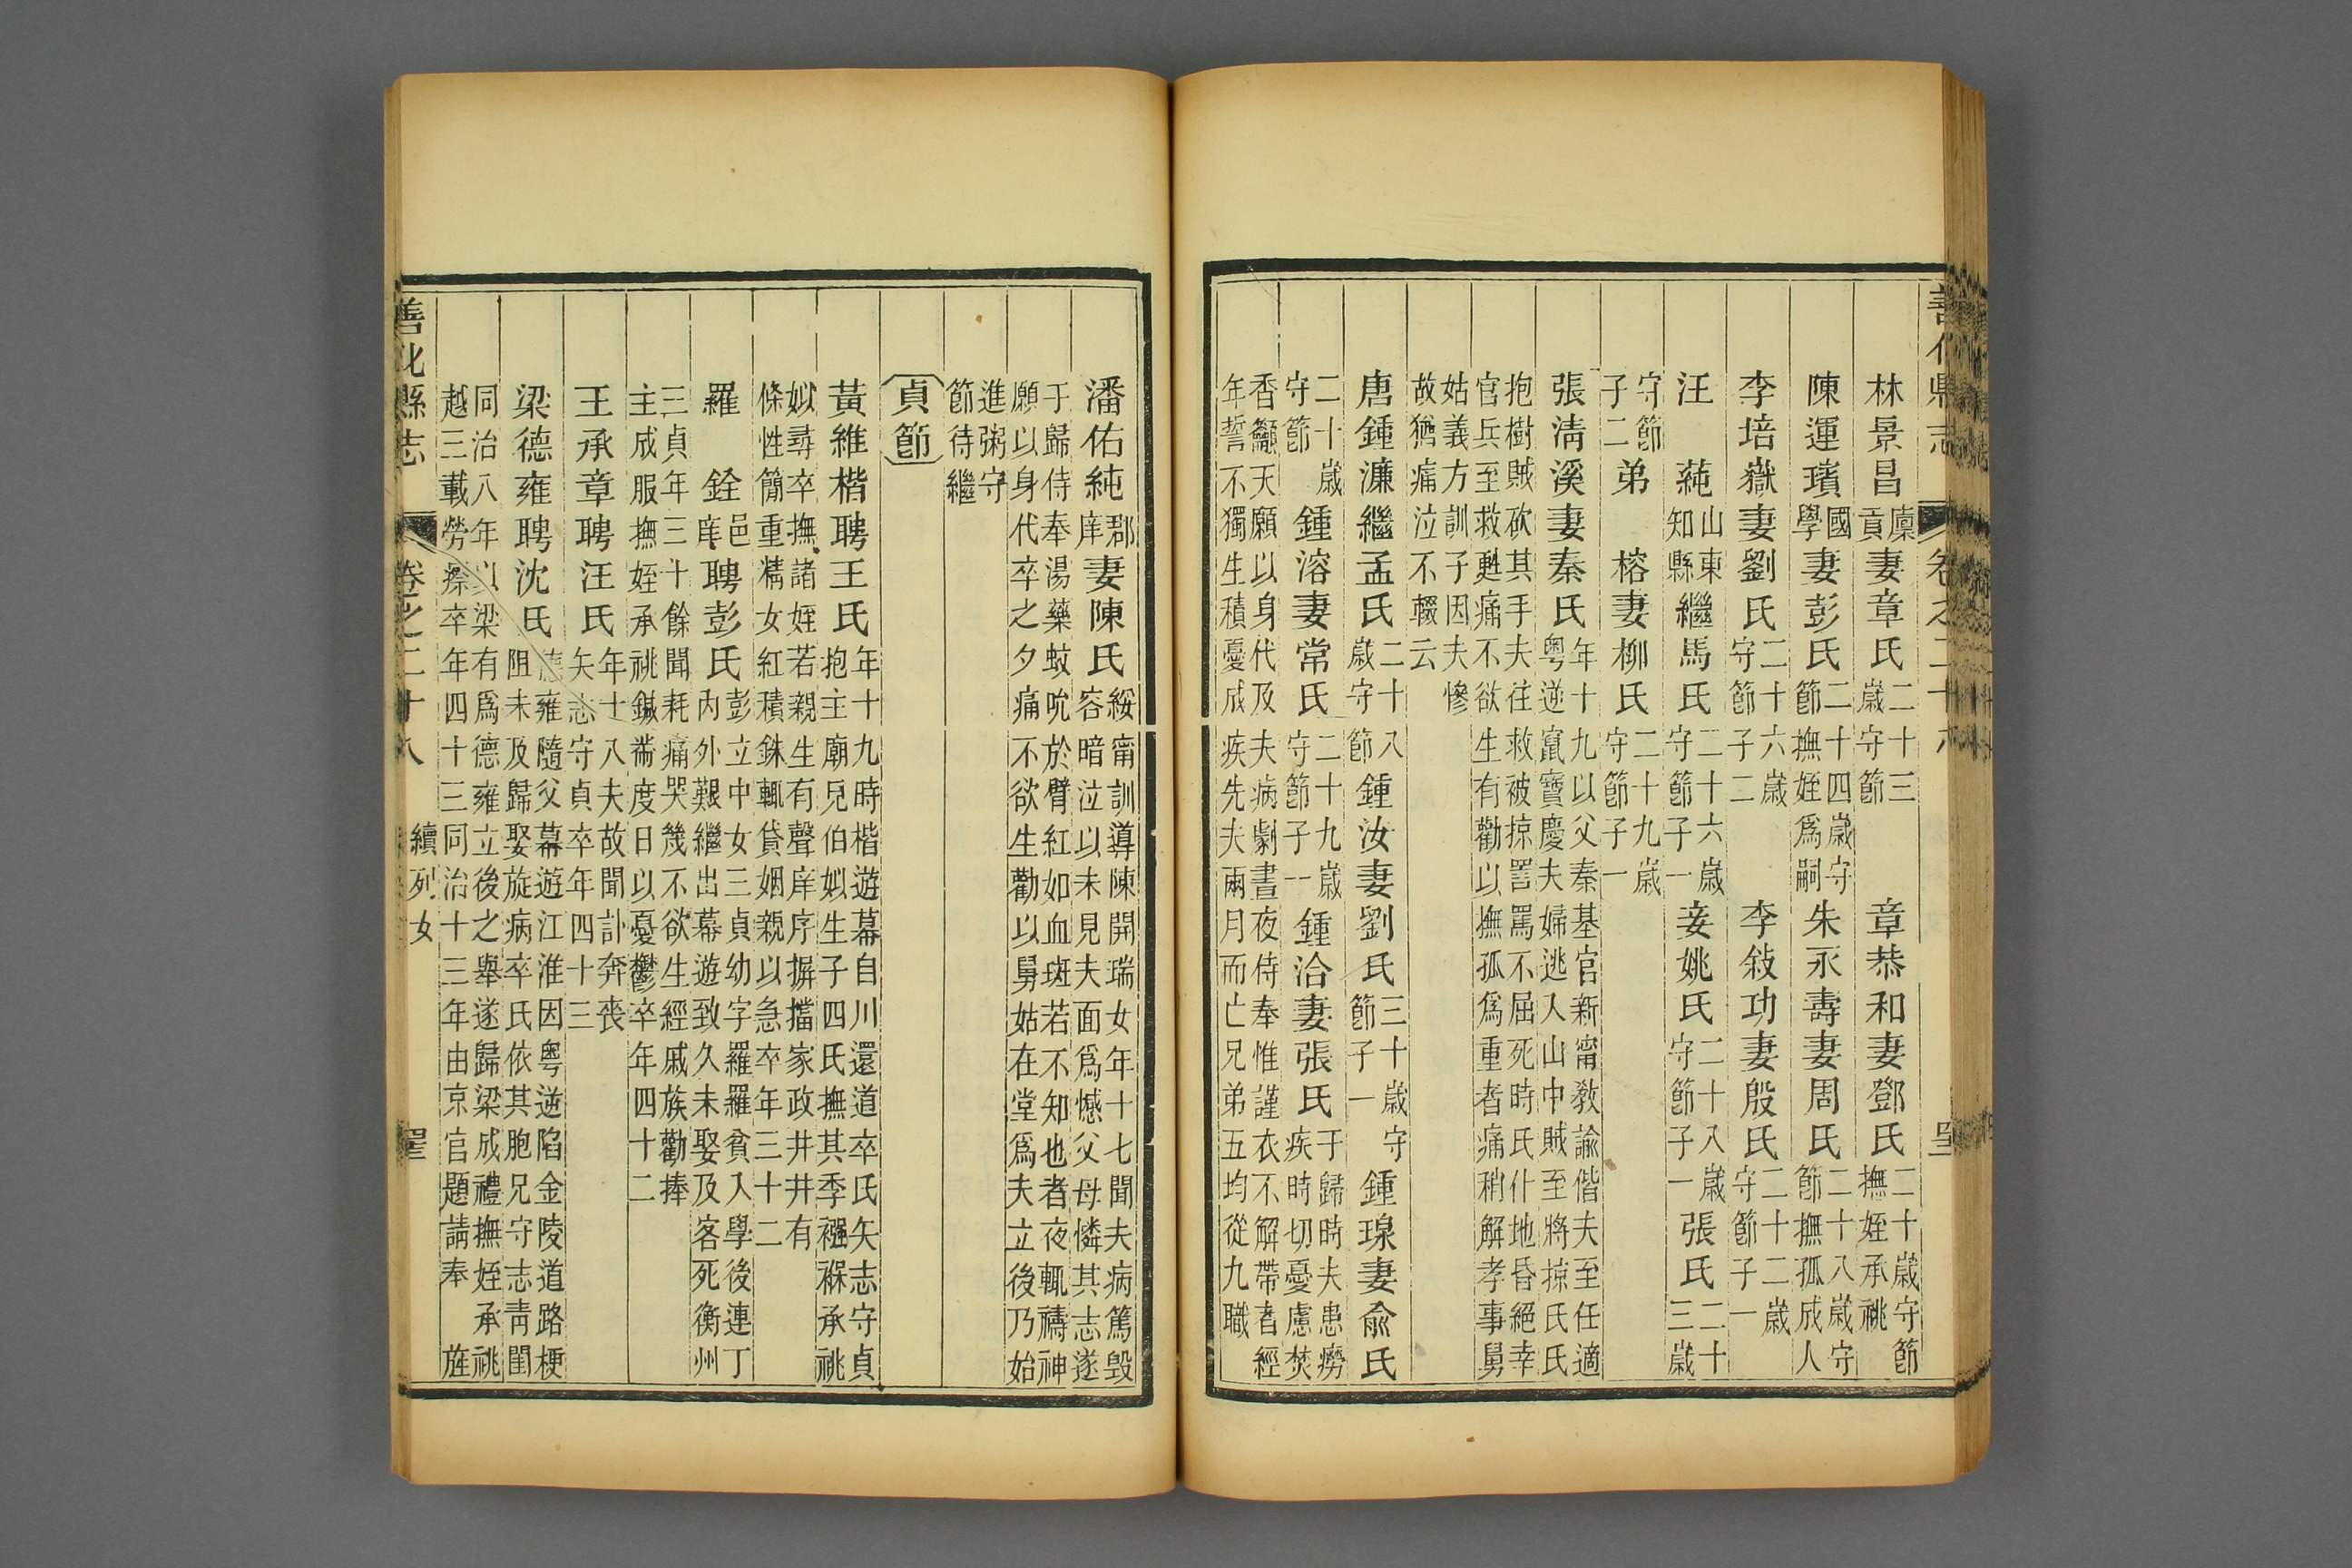 善化縣志 卷之二十八
林景昌廩貢妻章氏二十三歲守節 章恭和妻鄧氏二十歲守節撫姪承祧
陳運璸國學妻彭氏二十四歲守節撫姪爲嗣 朱永壽妻周氏二十八歲守節撫孤成人
李培嶽妻劉氏二十六歲守節子二 李敍功妻殷氏二十二歲守節子一
汪蒓山東知縣繼馬氏二十六歲守節子一 妾姚氏二十八歲守節子一 張氏二十三歲
守節子二 弟榕妻柳氏二十九歲守節子一
張淸溪妻秦氏年十九以父秦基官新甯敎諭偕夫至任適粵逆竄寶慶夫婦逃入山中賊至將掠氏氏
抱樹賊砍其手夫往救被掠詈罵不屈死時氏仆地昏絕幸官兵至救甦痛不欲生有勸以撫孤爲重者痛稍解孝事舅
姑義方訓子因夫慘故猶痛泣不輟云
唐鍾濂繼孟氏二十八歲守節 鍾汝妻劉氏三十歲守節子一 鍾瑔妻俞氏
二十歲守節 鍾溶妻常氏二十九歲守節子一 鍾洽妻張氏于歸時夫患癆疾時切憂慮焚
香籲天願以身代及夫病劇晝夜侍奉惟謹衣不解帶者經年誓不獨生積憂成疾先夫兩月而亡兄弟五均從九職
潘佑純郡庠妻陳氏綏甯訓導陳開瑞女年十七聞夫病篤毀容暗泣以未見夫面爲憾父母憐其志遂
于歸侍奉湯藥蚊吮於臂紅如血斑若不知也者夜輒禱神願以身代卒之夕痛不欲生勸以舅姑在堂爲夫立後乃始
進粥守節待繼
貞節
黃維楷聘王氏年十九時楷遊幕自川還道卒氏矢志守貞抱主廟見伯姒生子四氏撫其季襁褓承祧
姒尋卒撫諸姪若親生有聲庠序摒擋家政井井有條性簡重精女紅積銖輒貸姻親以急卒年三十二
羅銓邑庠聘彭氏彭立中女三貞幼字羅羅貧入學後連丁內外艱繼出幕遊致久未娶及客死衡州
三貞年三十餘聞耗痛哭幾不欲生經戚族勸捧主成服撫姪承祧鍼黹度日以憂鬱卒年四十二
王承章聘汪氏年十八夫故聞訃奔喪矢志守貞卒年四十三
梁德雍聘沈氏德雍隨父幕遊江淮因粵逆陷金陵道路梗阻未及歸娶旋病卒氏依其胞兄守志靑閨
同治八年以梁有爲德雍立後之舉遂歸梁成禮撫姪承祧越三載勞瘵卒年四十三同治十三年由京官題請奉旌
善化縣志 卷之二十八 續列女